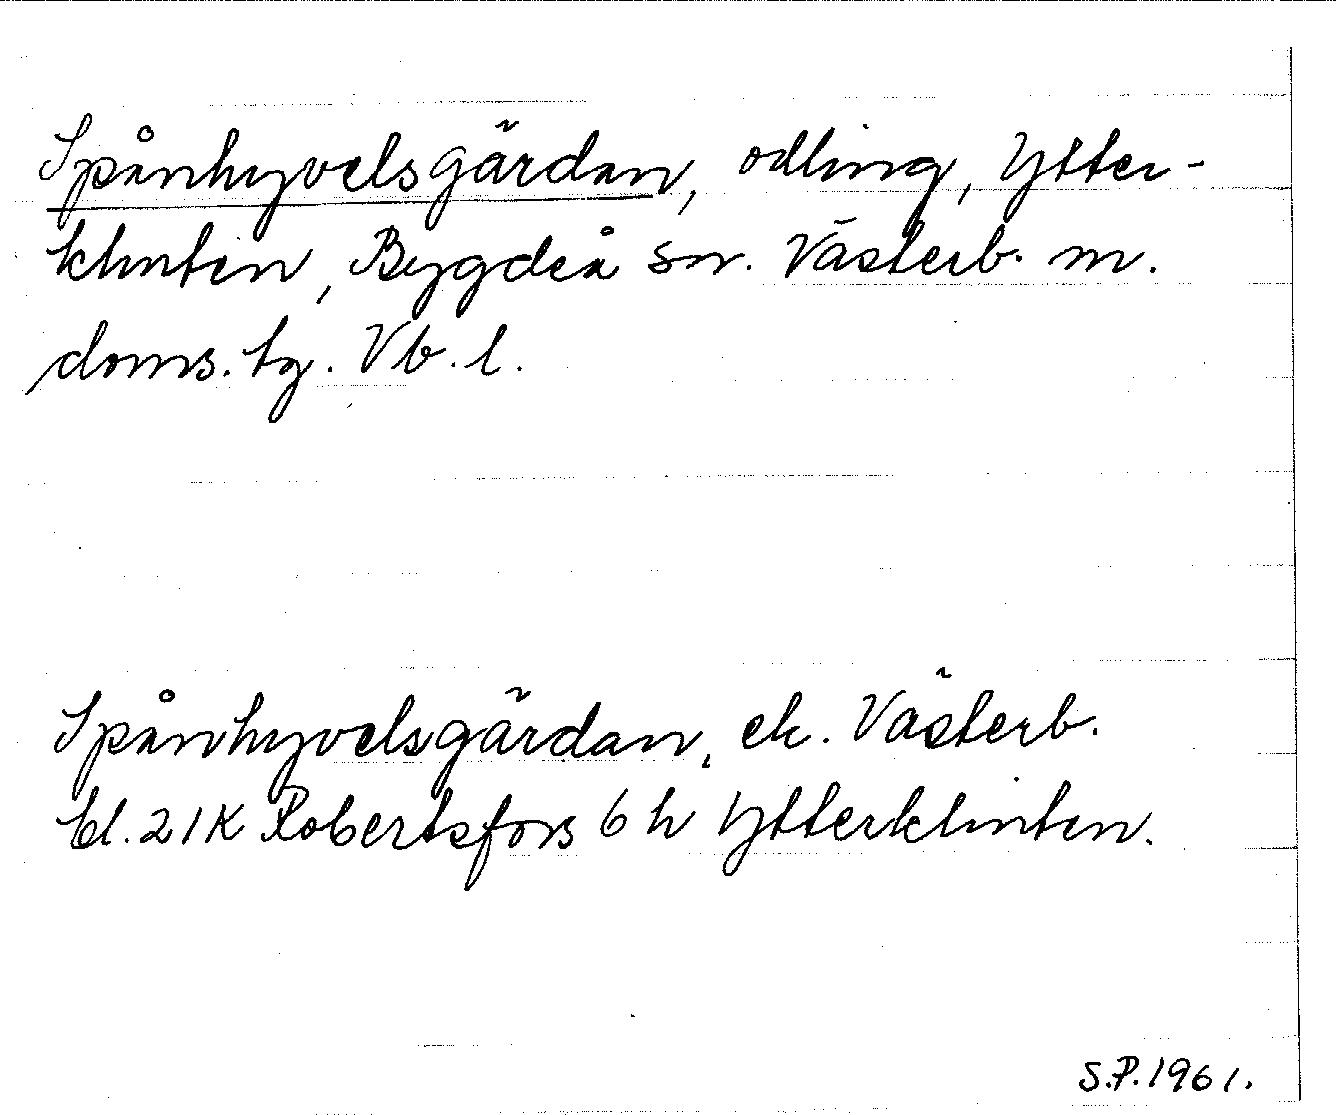 Spånhyvelsgärdan, odling, Ytter-
klinten, Bygdeå sn. Västerb. m.
doms. tg. Vb. l.
Spånhyvelsgärdan, ek. Västerb.
bl. 21K Robertsfors 6 h Ytterklinten.
S.P.1961.